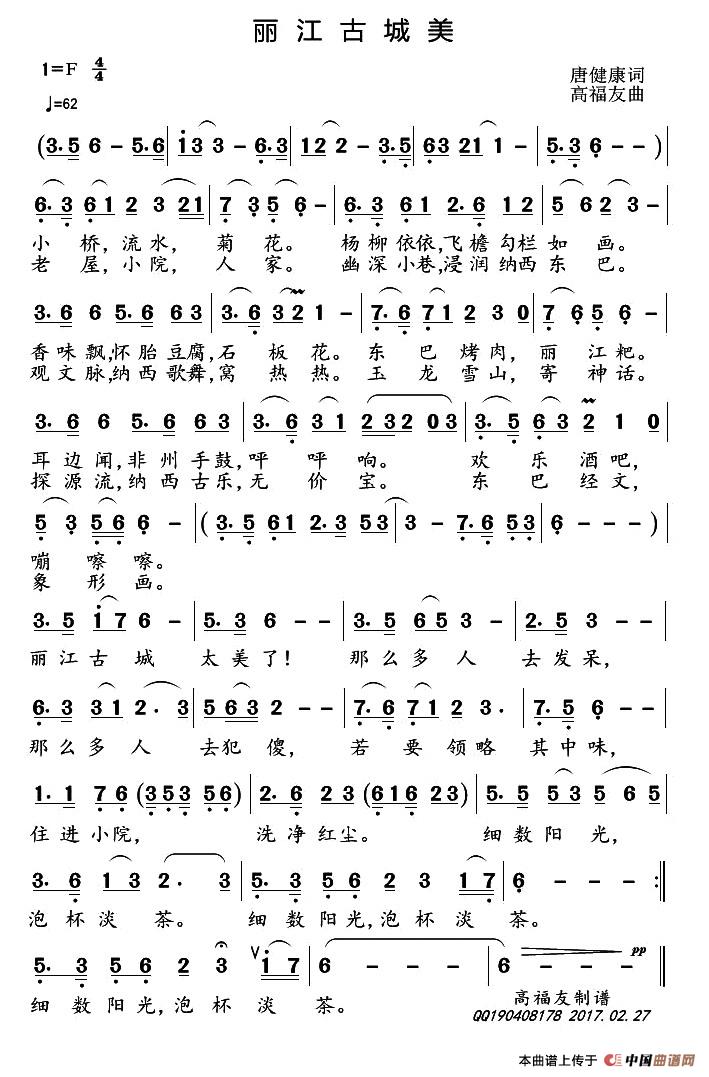 丽江古城美
1=F 4/4
唐健康词
♩=62
高福友曲
(3. 5 6 - 5. 6 | i 3 3 - 6. 3 | 1 2 2 - 3. 5 | 6 3 2 1 1 - | 5. 3 6 - - )
6. 3 6 1 2 3 2 1 | 7 3 5 6 - | 6. 3 6 1 2. 6 1 2 | 5 6 2 3 - |
小桥,流水,菊花。杨柳依依,飞檐勾栏如画。
老屋,小院,人家。幽深小巷,浸润纳西东巴。
3. 6 6 5. 6 6 3 | 3. 6 3 2 1 - | 7. 6 7 1 2 3 0 | 7 6 5 6 - |
香味飘,怀胎豆腐,石板花。东巴烤肉,丽江粑。
观文脉,纳西歌舞,窝热热。玉龙雪山,寄神话。
3. 6 6 5. 6 6 3 | 3. 6 3 1 2 3 2 0 3 | 3. 5 6 3 2 1 0 |
耳边闻,非州手鼓,呯呯响。欢乐酒吧,
探源流,纳西古乐,无价宝。东巴经文,
5 3 5 6 6 - | (3. 5 6 1 2. 3 5 3 | 3 - 7. 6 5 3 | 6 - - - ) |
嘣嚓嚓。
象形画。
3. 5 i 7 6 - | 5. 3 6 - - | 3. 5 6 5 3 - | 2. 5 3 - - |
丽江古城太美了!那么多人去发呆,
6. 3 3 1 2. 3 | 5 6 3 2 - - | 7. 6 7 1 2 3. | 7. 5 6 - - |
那么多人去犯傻,若要领略其中味,
1. 1 7 6 (3 5 3 5 6) | 2. 6 2 3 (6 1 6 2 3) | 5. 5 5 3 5 6 5 |
住进小院,洗净红尘。细数阳光,
3. 6 1 3 2. 3 | 5. 3 5 6 2 3 1 7 | 6 - - - :|
泡杯淡茶。细数阳光,泡杯淡茶。
5. 3 5 6 2 3 V i 7 | 6 - - - | 6 - - - pp ||
细数阳光,泡杯淡茶。
高福友制谱
QQ190408178 2017.02.27
本曲谱上传于 中国曲谱网